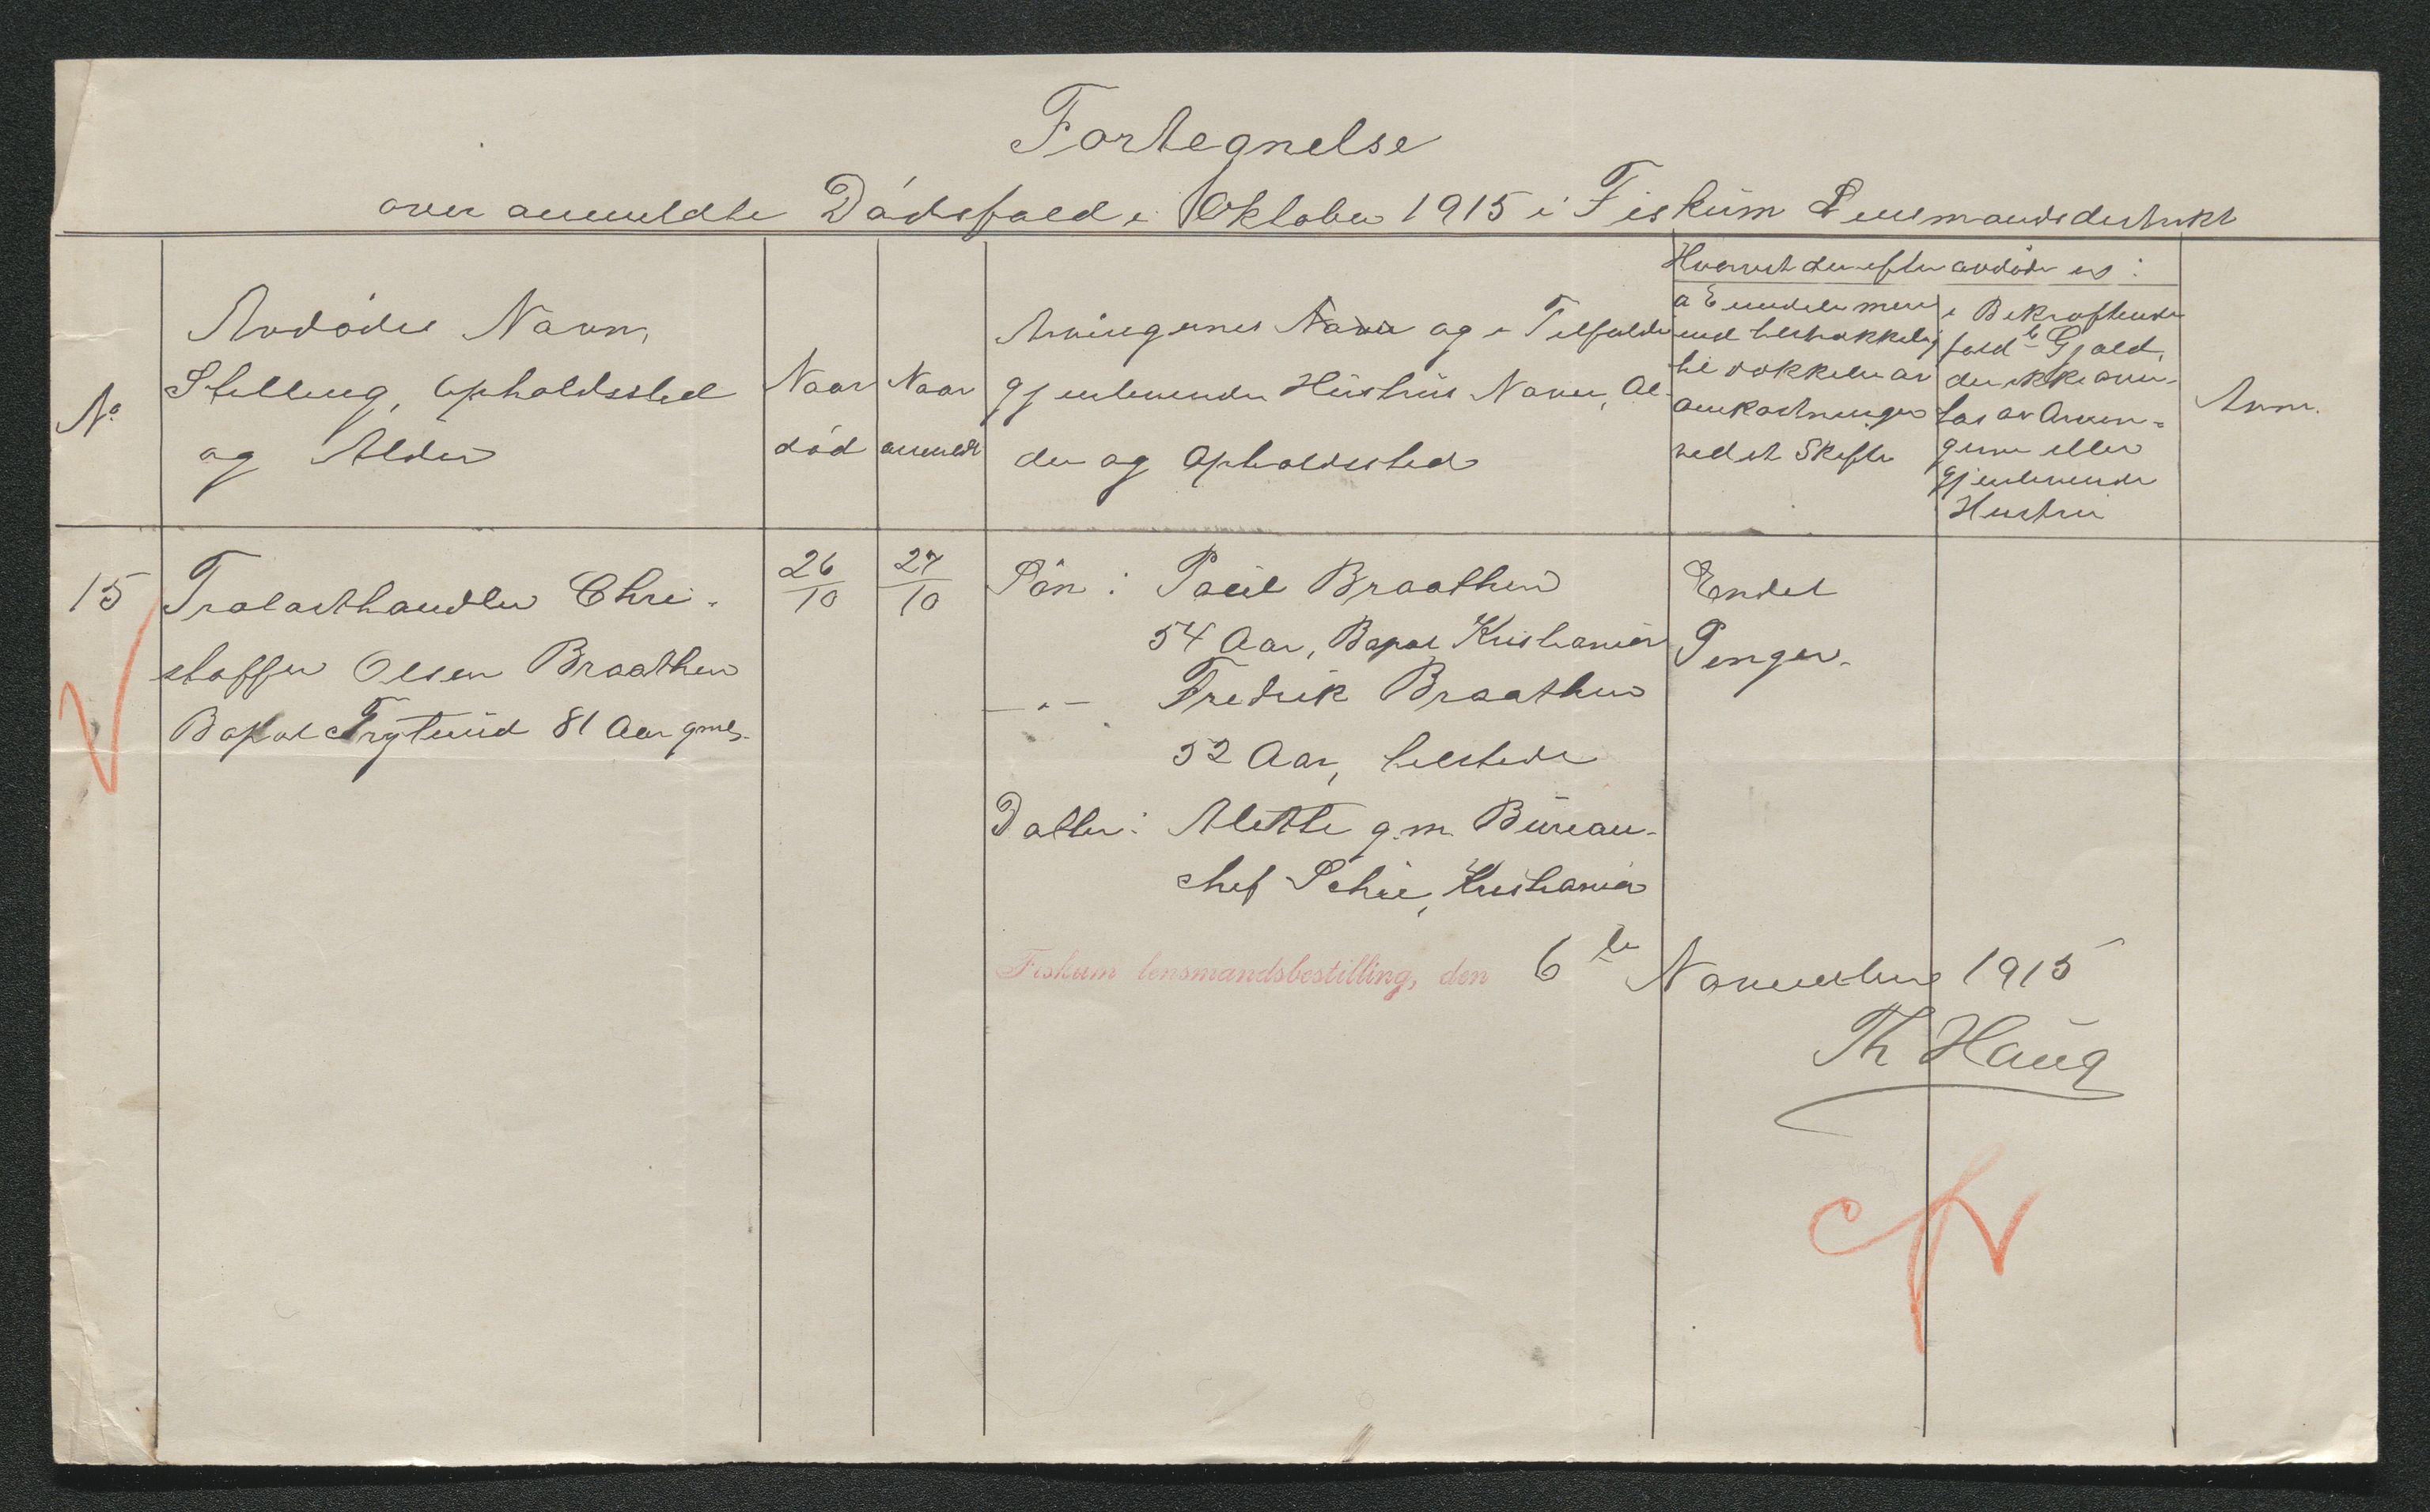 Fortegnelse
over anmeldte Dødsfald i Oktober 1915 i Fiskum Lensmandsdistrikt
No
Avdødes Navn,
Stilling, Opholdssted
og Alder
Naar
død
Naar
anmeldt
Arvingernes Navn og i Tilfælde
gjenlevende Hustrus Navn, Al-
der og Opholdssted
Hvorvidt der efter avdøde er:
a Eiendele mere
end tilstrækkelig
til dækkelse av
omkostninger
ved et Skifte
i Bekræftende
fald b Gjæld,
der ikke over-
tas av Arvin-
gerne eller
gjenlevende
Hustru
Anm.
15
Trælasthandler Chri-
stoffer Olsen Braathen
Bopæl 81 Aar gml.
26/10
27/10
Søn: Paul Braathen
54 Aar, Bopæl Kristiania
-"- Fredrik Braathen
52 Aar, tilstede
Datter: Alethe g.m. Bureau-
chef Schie, Kristiania
Endel
Penger.
Fiskum lensmandsbestilling, den 6te November 1915
Th Haug